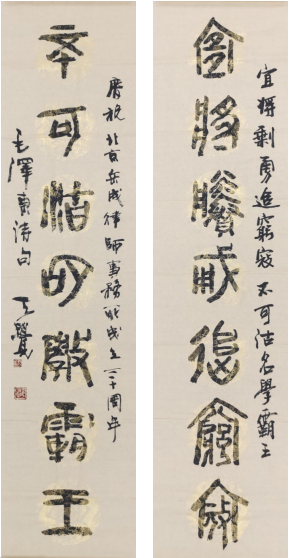 宜將賸勇追窮寇
宜將剩勇追窮寇 不可沽名學霸王
不可沽名學霸王
慶祝北京岳成律師事務所成立二十周年
毛澤東詩句 王